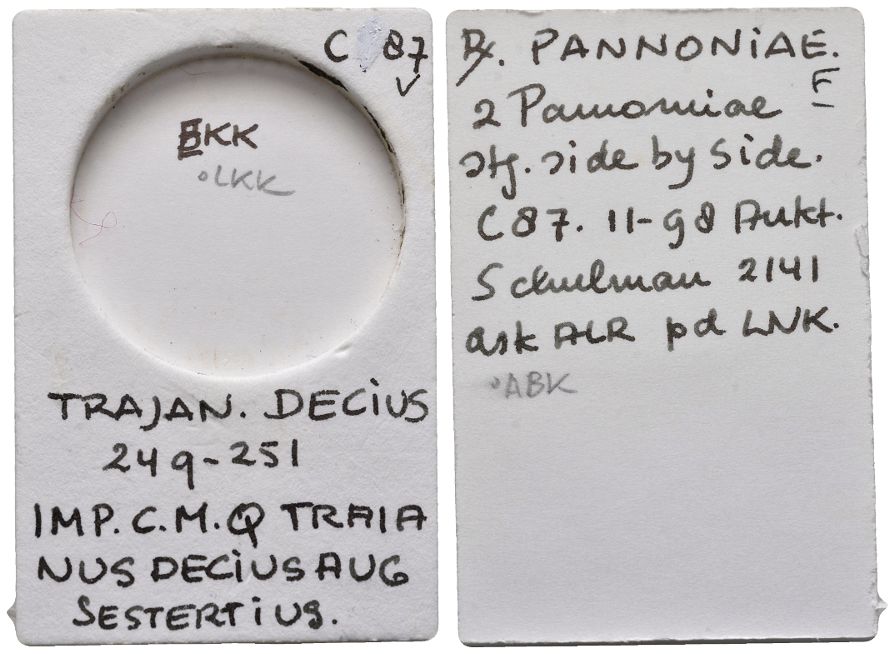 C 87
✓
BKK
•LKK
TRAJAN. DECIUS
249-251
IMP. C. M. Q TRAIA
NUS DECIUS AUG
SESTERTIUS.
℞. PANNONIAE.
F
2 Pannoniae
stg. side by side.
C 87. 11-98 Aukt.
Schulman 2141
ask ALR pd LNK.
•ABK